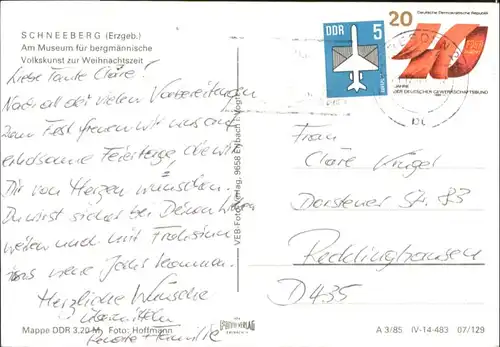 SCHNEEBERG (Erzgeb.)
Am Museum für bergmännische
Volkskunst zur Weihnachtszeit
Liebe Tante Cläre!
Nach all den vielen Vorbereitungen
zum Fest freuen wir uns auf
erholsame Feiertage, die wir
Dir von Herzen wünschen.
Du wirst sicher bei Deinen
weilen und mit Frohsinn
ins neue Jahr kommen.
Herzliche Wünsche
übermitteln
Renate + Familie
Mappe DDR 3,20 M, Foto: Hoffmann
VEB-Foto-Verlag, 9658 Erlbach i. Vogtl.
DDR 5
20
Deutsche Demokratische Republik
40
JAHRE
FREIER DEUTSCHER GEWERKSCHAFTSBUND
Frau
Cläre Krügel
Dorstener Str. 83
Recklinghausen
D 435
A 3/85 IV-14-483 07/129